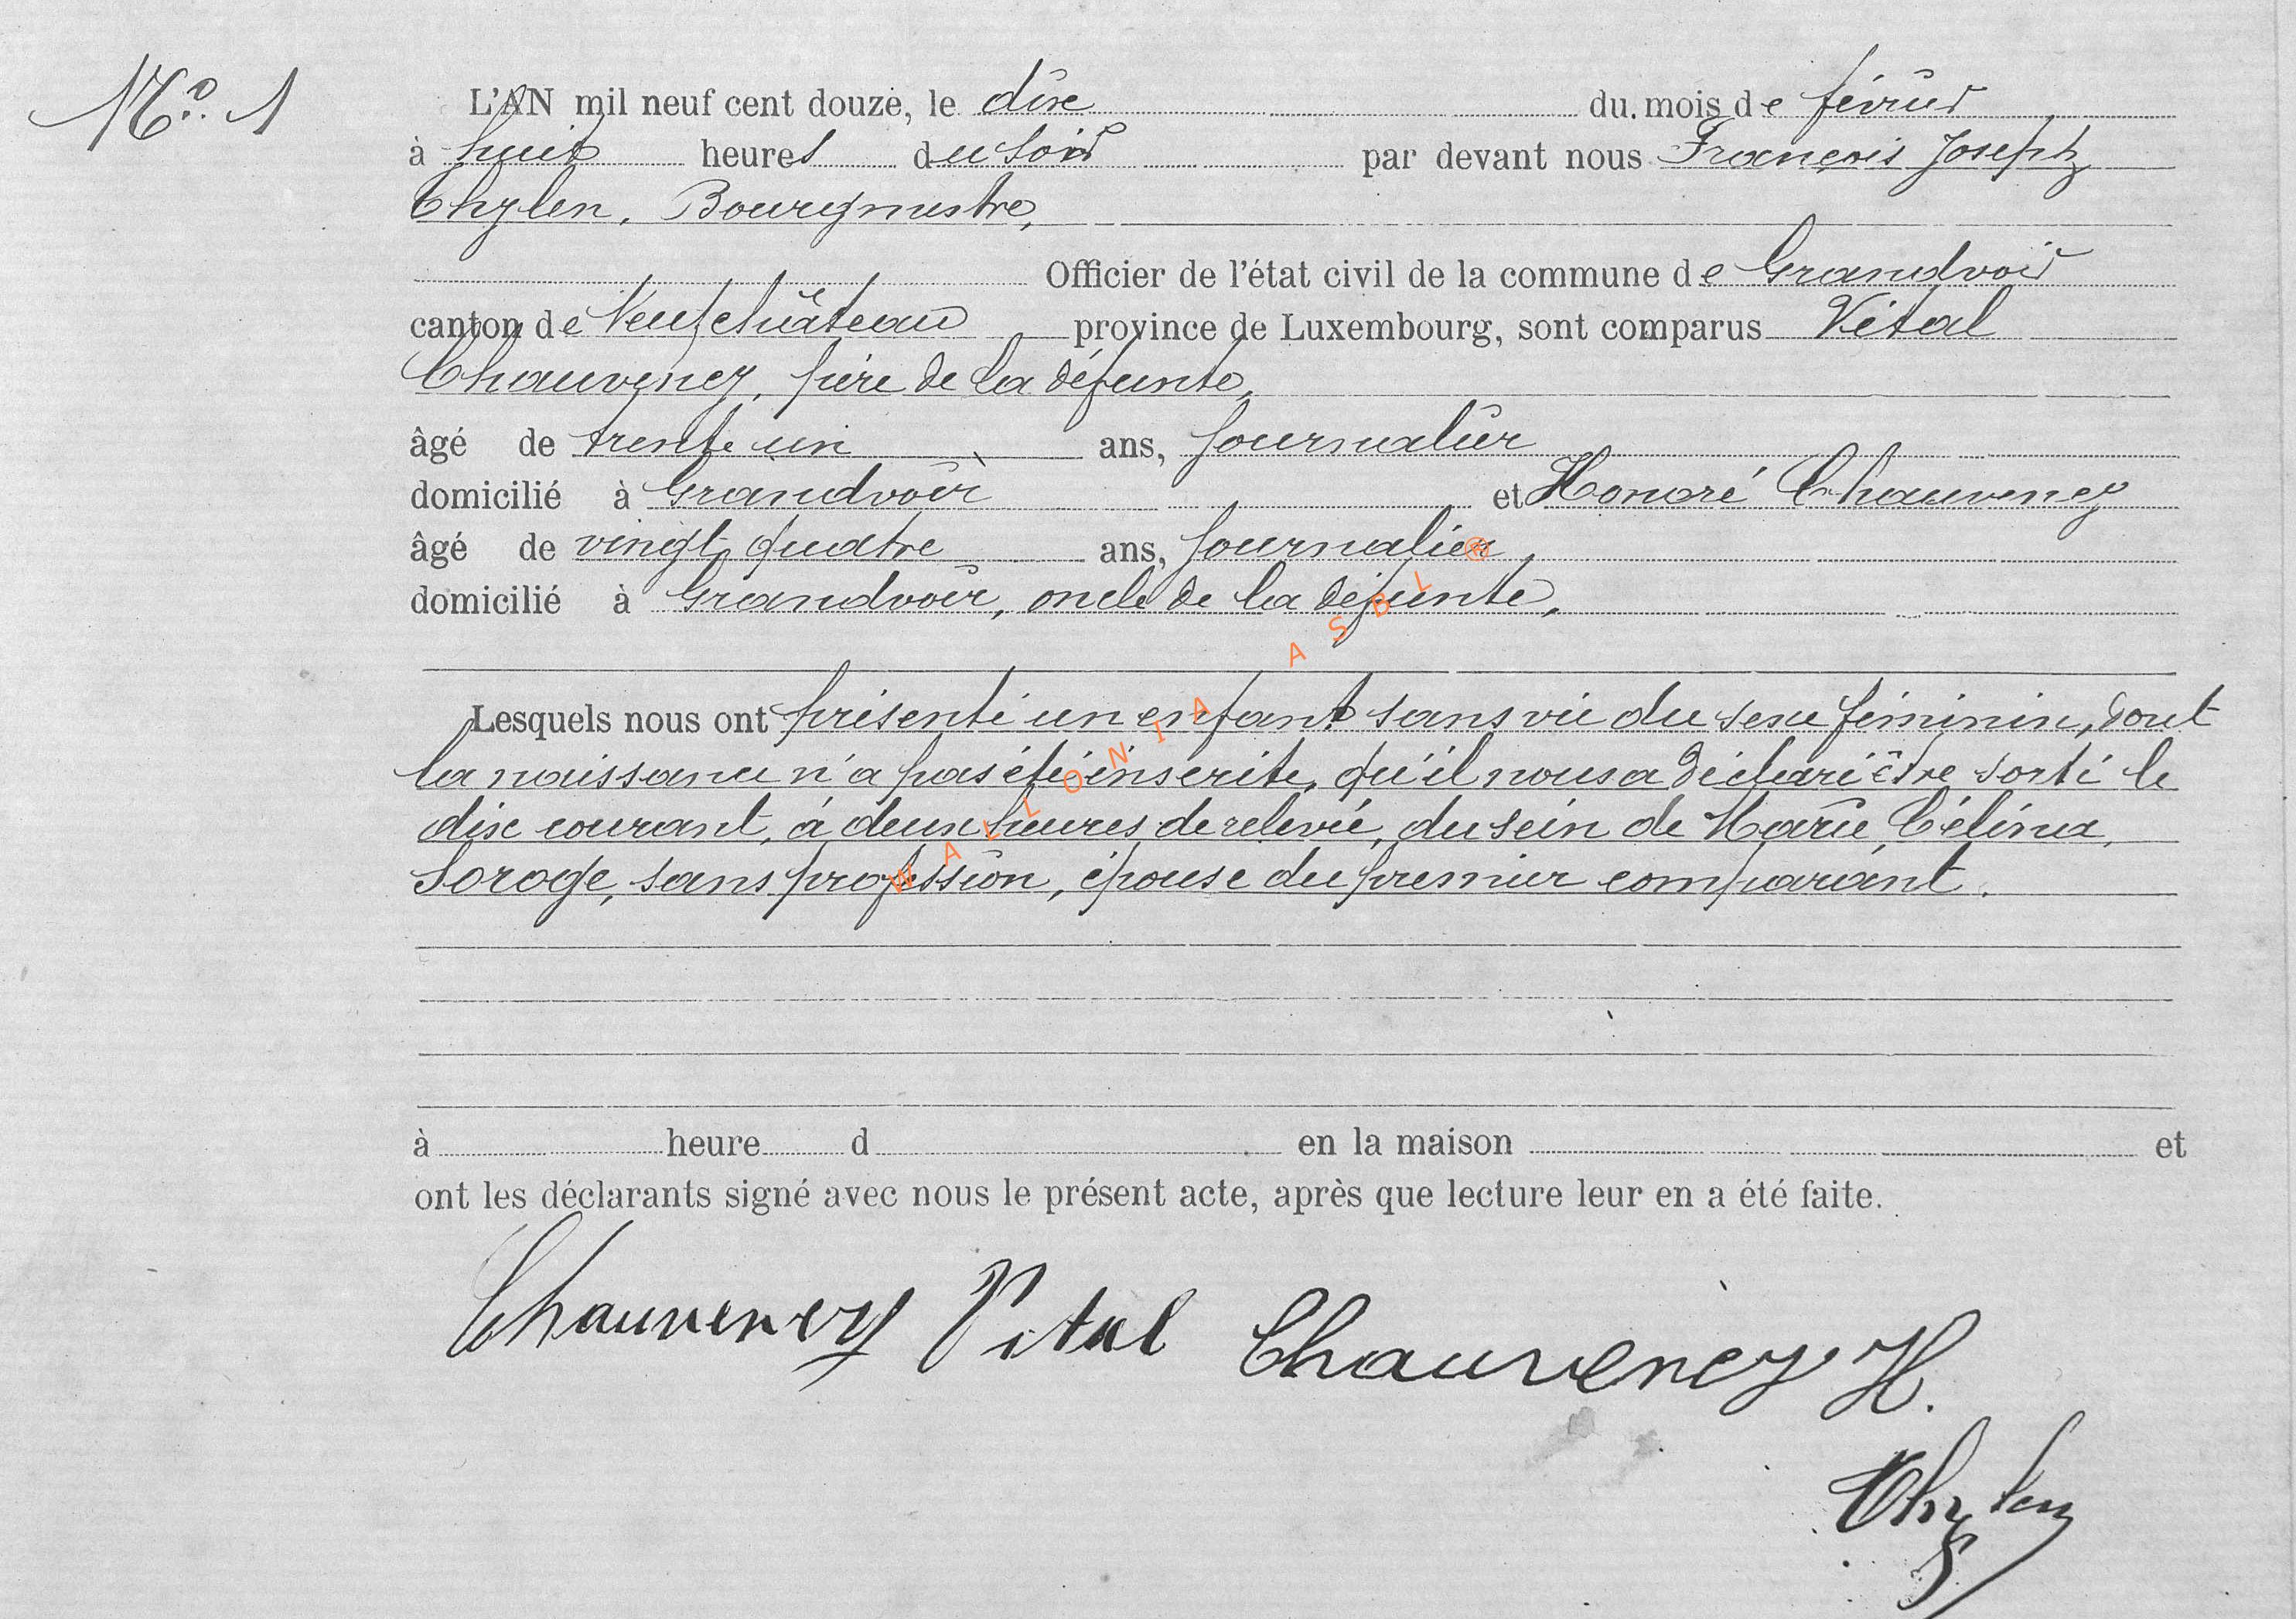 N° 1
L'AN mil neuf cent douze, le dix du mois de février
à huit heures du soir par devant nous François Joseph
Thylen, Bourgmestre,
Officier de l'état civil de la commune de Grandvoir
canton de Neufchâteau province de Luxembourg, sont comparus Vital
Chauveney, père de la défunte,
âgé de trente un ans, journalier
domicilié à Grandvoir et Honoré Chauveney
âgé de vingt quatre ans, journalier,
domicilié à Grandvoir, oncle de la défunte,
Lesquels nous ont présenté un enfant sans vie du sexe féminin, dont
la naissance n'a pas été inscrite, qu'il nous a déclaré être sorti le
dix courant, à deux heures de relevée, du sein de Marie Célina,
Soroge, sans profession, épouse du premier comparant.
à heure d en la maison et
ont les déclarants signé avec nous le présent acte, après que lecture leur en a été faite.
Chauveney Vital Chauveney H.
Thylen
WALLONIA ASBL ®